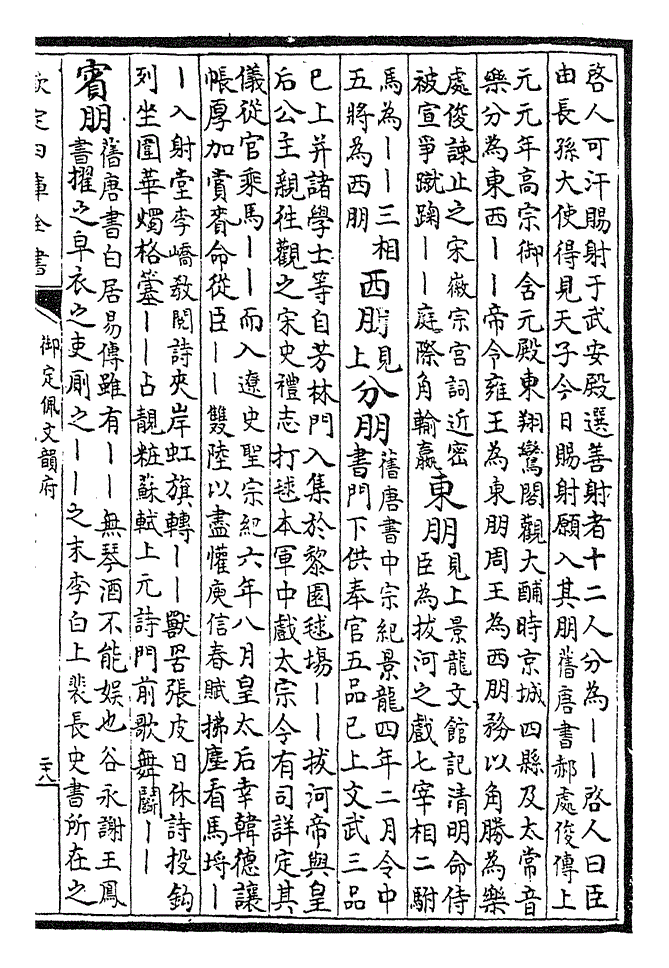 啓人可汗賜射于武安殿選善射者十二人分為——啓人曰臣
由長孫大使得見天子今日賜射願入其朋舊唐書郝處俊傳上
元元年高宗御含元殿東翔鸞閣觀大酺時京城四縣及太常音
樂分為東西——帝令雍王為東朋周王為西朋務以角勝為樂
處俊諫止之宋徽宗宮詞近密
被宣爭蹴踘——庭際角輸嬴
東朋
見上景龍文館記清明命侍
臣為拔河之戲七宰相二駙
馬為——三相
五將為西朋
西朋
見
上
分朋
舊唐書中宗紀景龍四年二月令中
書門下供奉官五品已上文武三品
已上并諸學士等自芳林門入集於黎園毬場——拔河帝與皇
后公主親徃觀之宋史禮志打毬本軍中戲太宗令有司詳定其
儀從官乘馬——而入遼史聖宗紀六年八月皇太后幸韓德讓
帳厚加賞賚命從臣——雙陸以盡懽庾信春賦拂塵看馬埒—
—入射堂李嶠教閱詩夾岸虹旗轉——獸罟張皮日休詩投鈎
列坐圍華燭格簺——占靚粧蘇軾上元詩門前歌舞鬭——
賓朋
舊唐書白居易傳雖有——無琴酒不能娛也谷永謝王鳳
書擢之皁衣之吏廁之——之末李白上裴長史書所在之
欽定四庫全書
御定佩文韻府
二十八